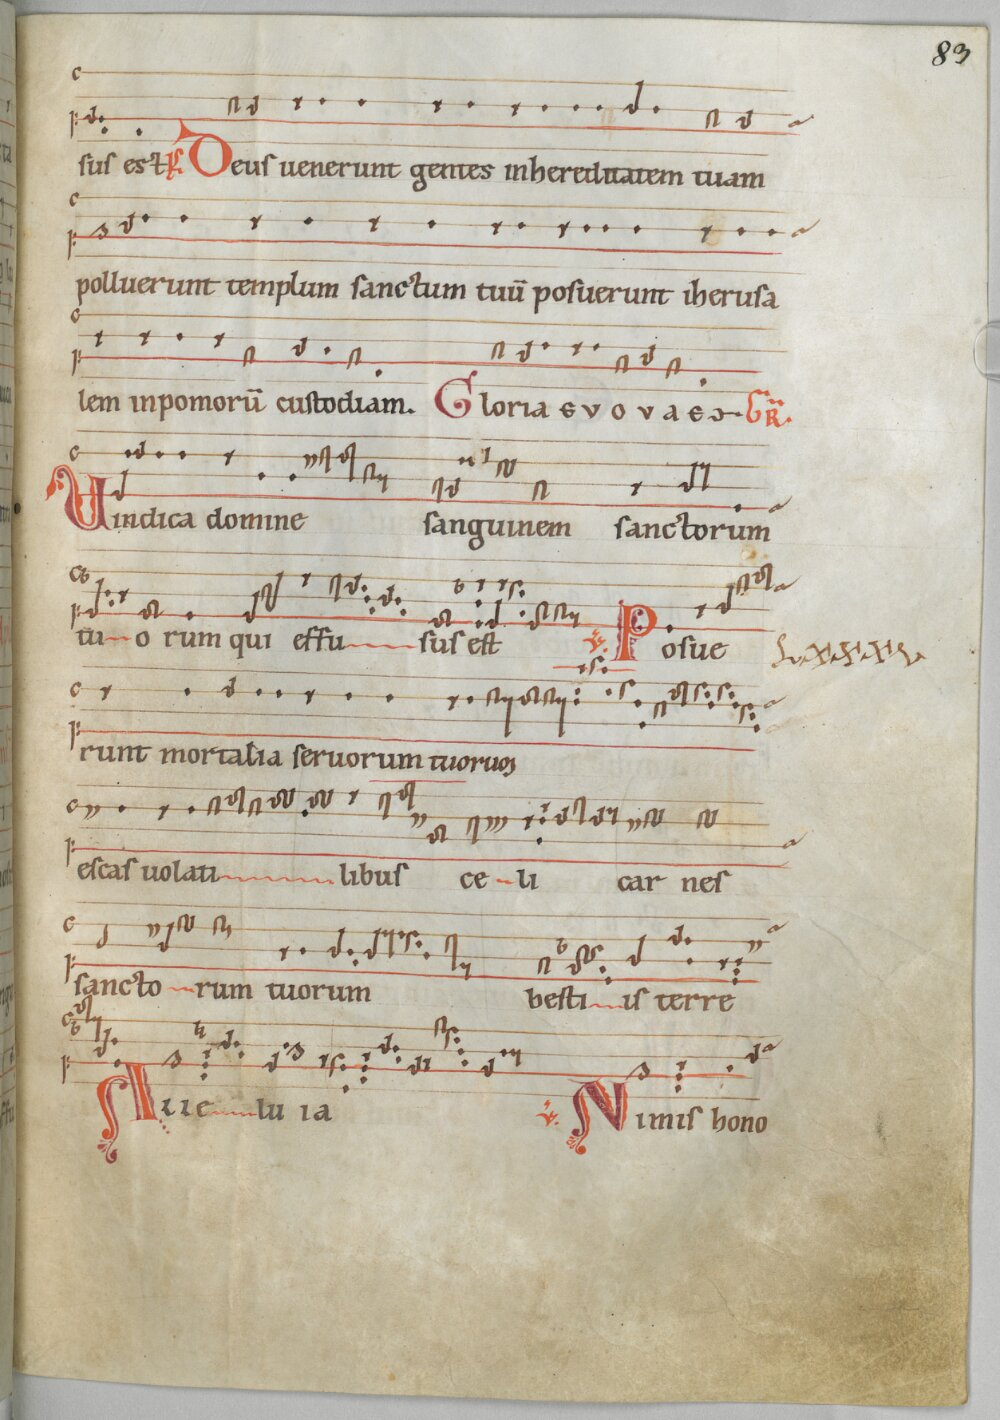 83
sus est Ps Deus uenerunt gentes inhereditatem tuam
polluerunt templum sanctum tuū posuerunt iherusa
lem inpomorū custodiam. Gloria e v o v a e GR.
Uindica domine sanguinem sanctorum
tu o rum qui effu sus est V. Posue
runt mortalia seruorum tuorum
escas uolati libus ce li car nes
sancto rum tuorum besti is terre
Alle lu ia V. Nimis hono